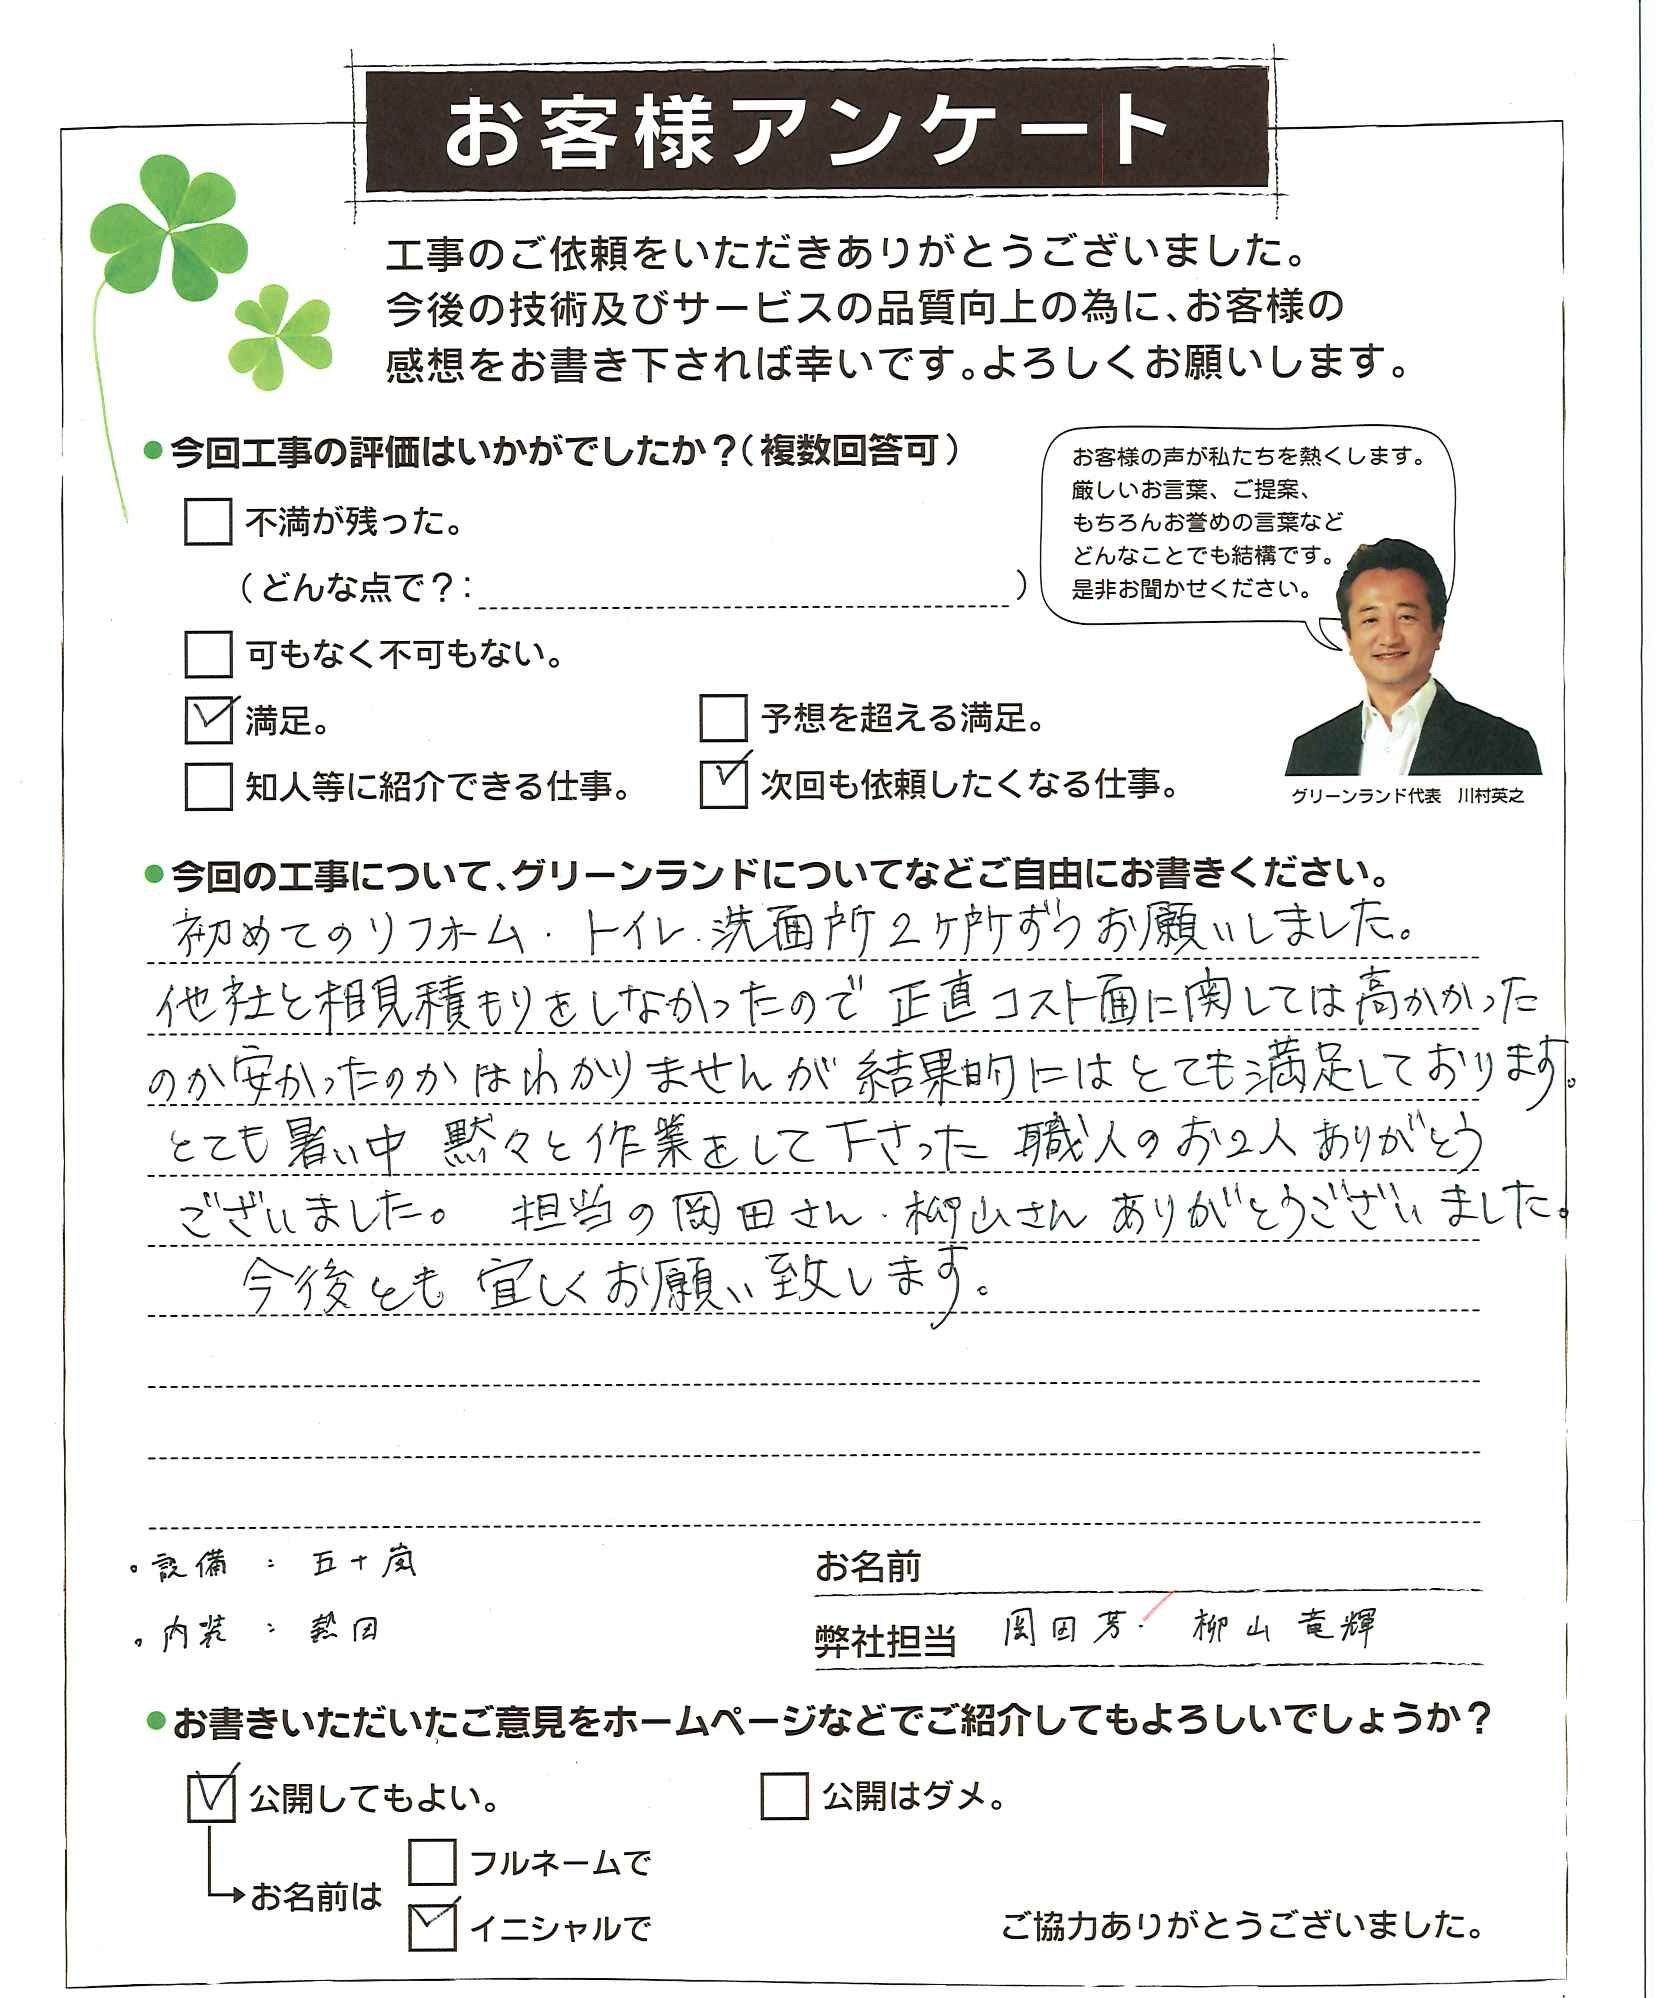 お客様アンケート
工事のご依頼をいただきありがとうございました。
今後の技術及びサービスの品質向上の為に、お客様の
感想をお書き下されば幸いです。よろしくお願いします。
●今回工事の評価はいかがでしたか?(複数回答可)
不満が残った。
(どんな点で?: )
可もなく不可もない。
満足。
予想を超える満足。
知人等に紹介できる仕事。
次回も依頼したくなる仕事。
お客様の声が私たちを熱くします。
厳しいお言葉、ご提案、
もちろんお誉めの言葉など
どんなことでも結構です。
是非お聞かせください。
グリーンランド代表 川村英之
●今回の工事について、グリーンランドについてなどご自由にお書きください。
初めてのリフォーム・トイレ・洗面所2ヶ所ずつお願いしました。
他社と相見積もりをしなかったので正直コスト面に関しては高かかった
のか安かったのかはわかりませんが結果的にはとても満足しております。
とても暑い中 黙々と作業をして下さった 職人のお2人ありがとう
ございました。 担当の岡田さん・柳山さん ありがとうございました。
今後とも 宜しくお願い致します。
。設備 : 五十嵐
。内装 : 熱田
お名前
弊社担当 岡田芳・柳山竜輝
●お書きいただいたご意見をホームページなどでご紹介してもよろしいでしょうか?
公開してもよい。
公開はダメ。
お名前は
フルネームで
イニシャルで
ご協力ありがとうございました。